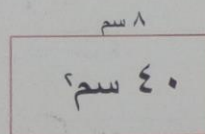 ٨ سم
٤٠ سم٢